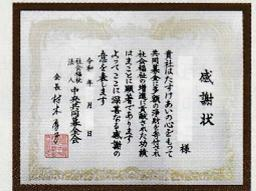 感謝状
様
貴社はたすけあいの心をもって
共同募金に多額の浄財を寄付され
社会福祉の増進に貢献された功績
はまことに顕著であります
よってここに深甚なる感謝の
意を表します
令和 年 月 日
社会福祉法人 中央共同募金会
会長